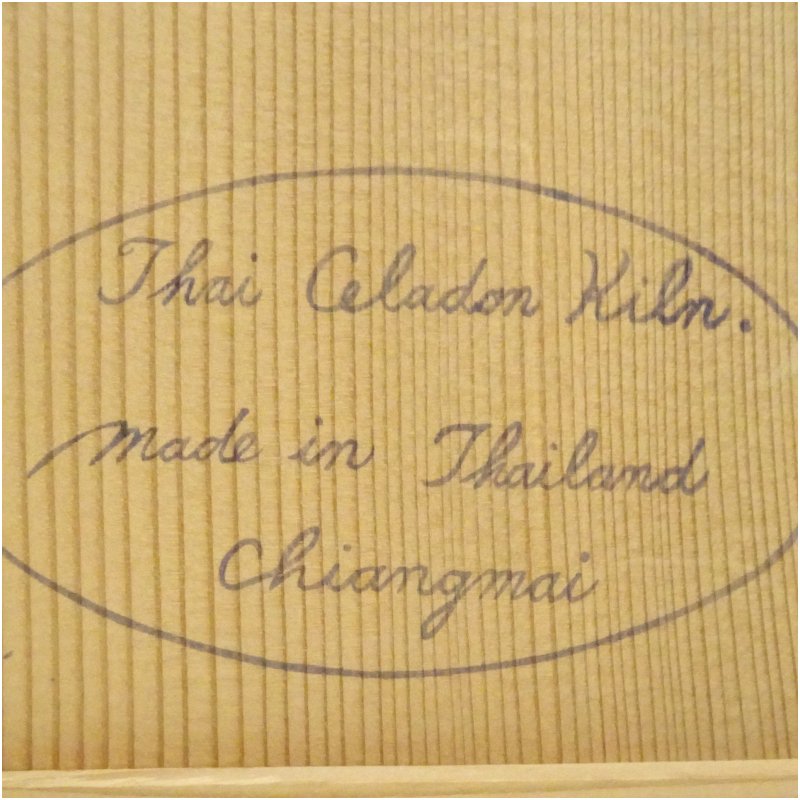 Thai Celadon Kiln.
made in Thailand
Chiangmai